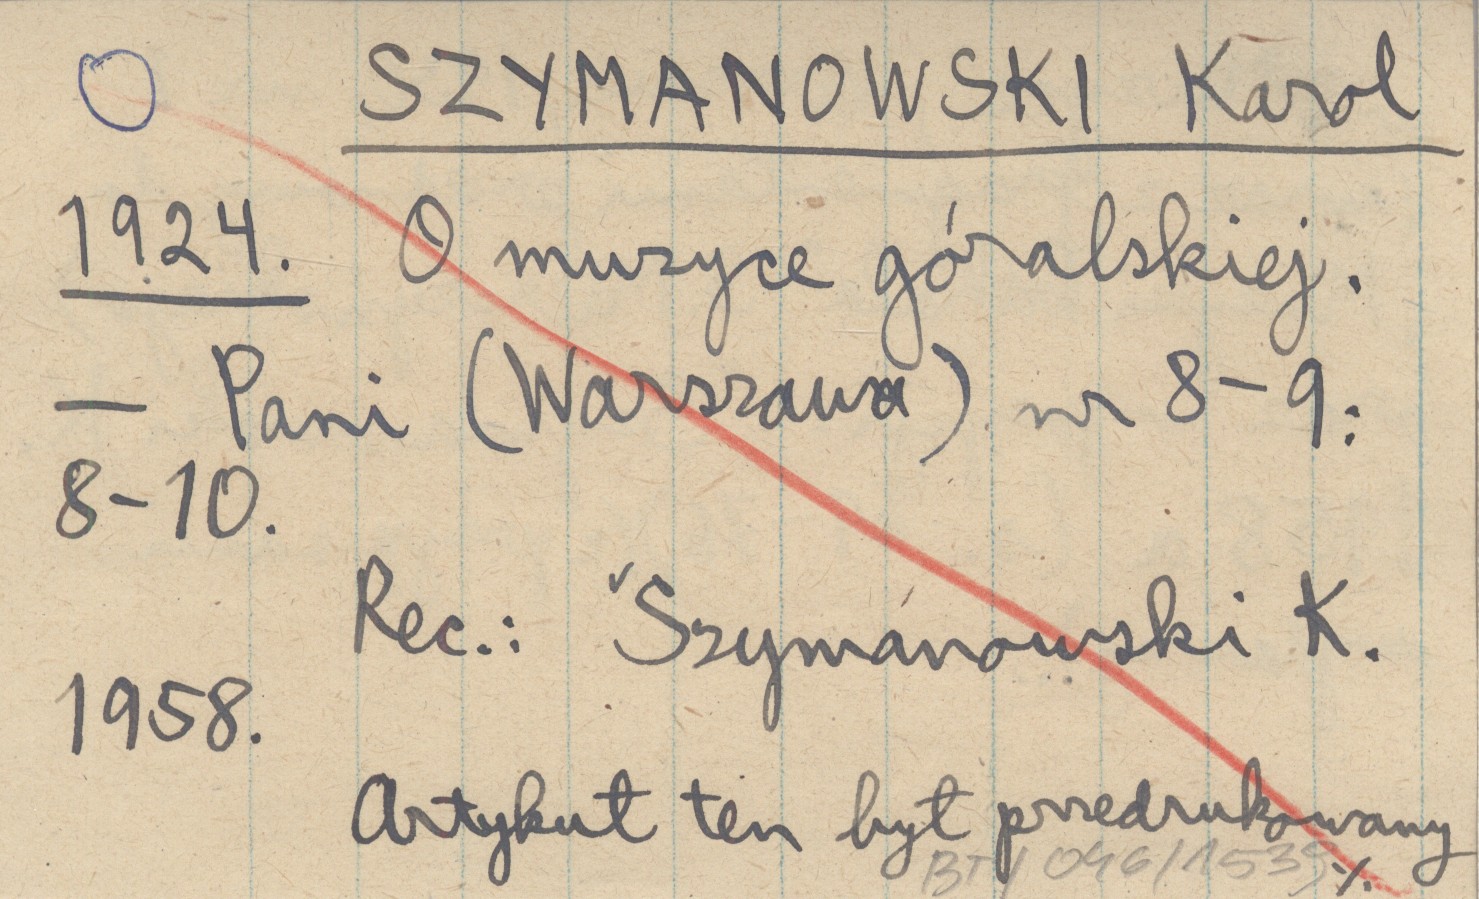 SZYMANOWSKI Karol
1924. O muzyce góralskiej.
— Pani (Warszawa) nr 8-9:
8-10.
Rec.: Szymanowski K.
1958.
Artykuł ten był przedrukowany
BT/046/1539
./.